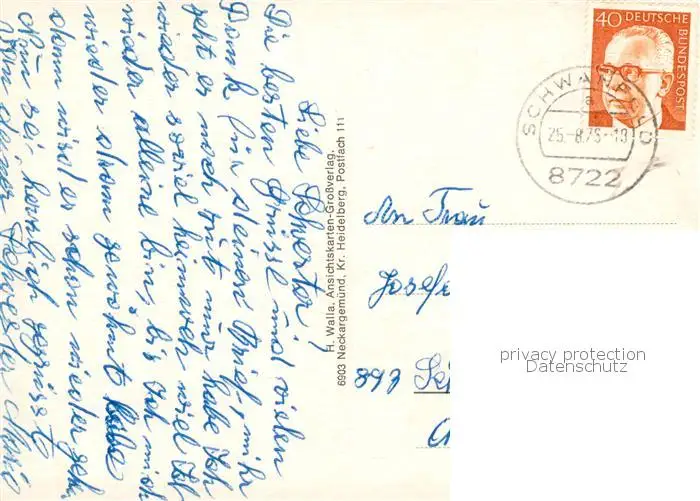 Liebe Schwester!
Die besten Grüsse und vielen
Dank für deinen Brief, mir
geht es noch gut nur habe ich
wieder soviel heimweh weil ich
wieder alleine bin, bis ich mich
wieder dran gewöhnt habe
dann wird es schon wieder geh.
Nun sei herzlich gegrüsst
von deiner Schwester
H. Walla, Ansichtskarten-Großverlag,
6903 Neckargemünd, Kr. Heidelberg, Postfach 111
40 DEUTSCHE
BUNDESPOST
SCHWANFELD
a
25.-8.75-19
8722
An Frau
Josef
897
privacy protection
Datenschutz